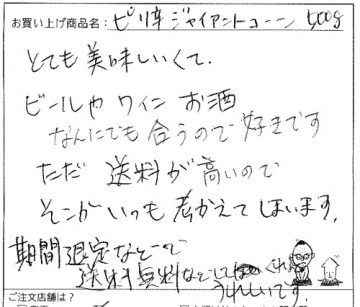 お買い上げ商品名: ピリ辛ジャイアントコーン 500g
とても美味しいくて、
ビールや ワイン お酒
なんにでも 合うので 好きです
ただ 送料が 高いので
そこが いつも 考かえて しまいます。
期間限定などで
送料無料などにして くれると
うれしいです。
ご注文店舗は?